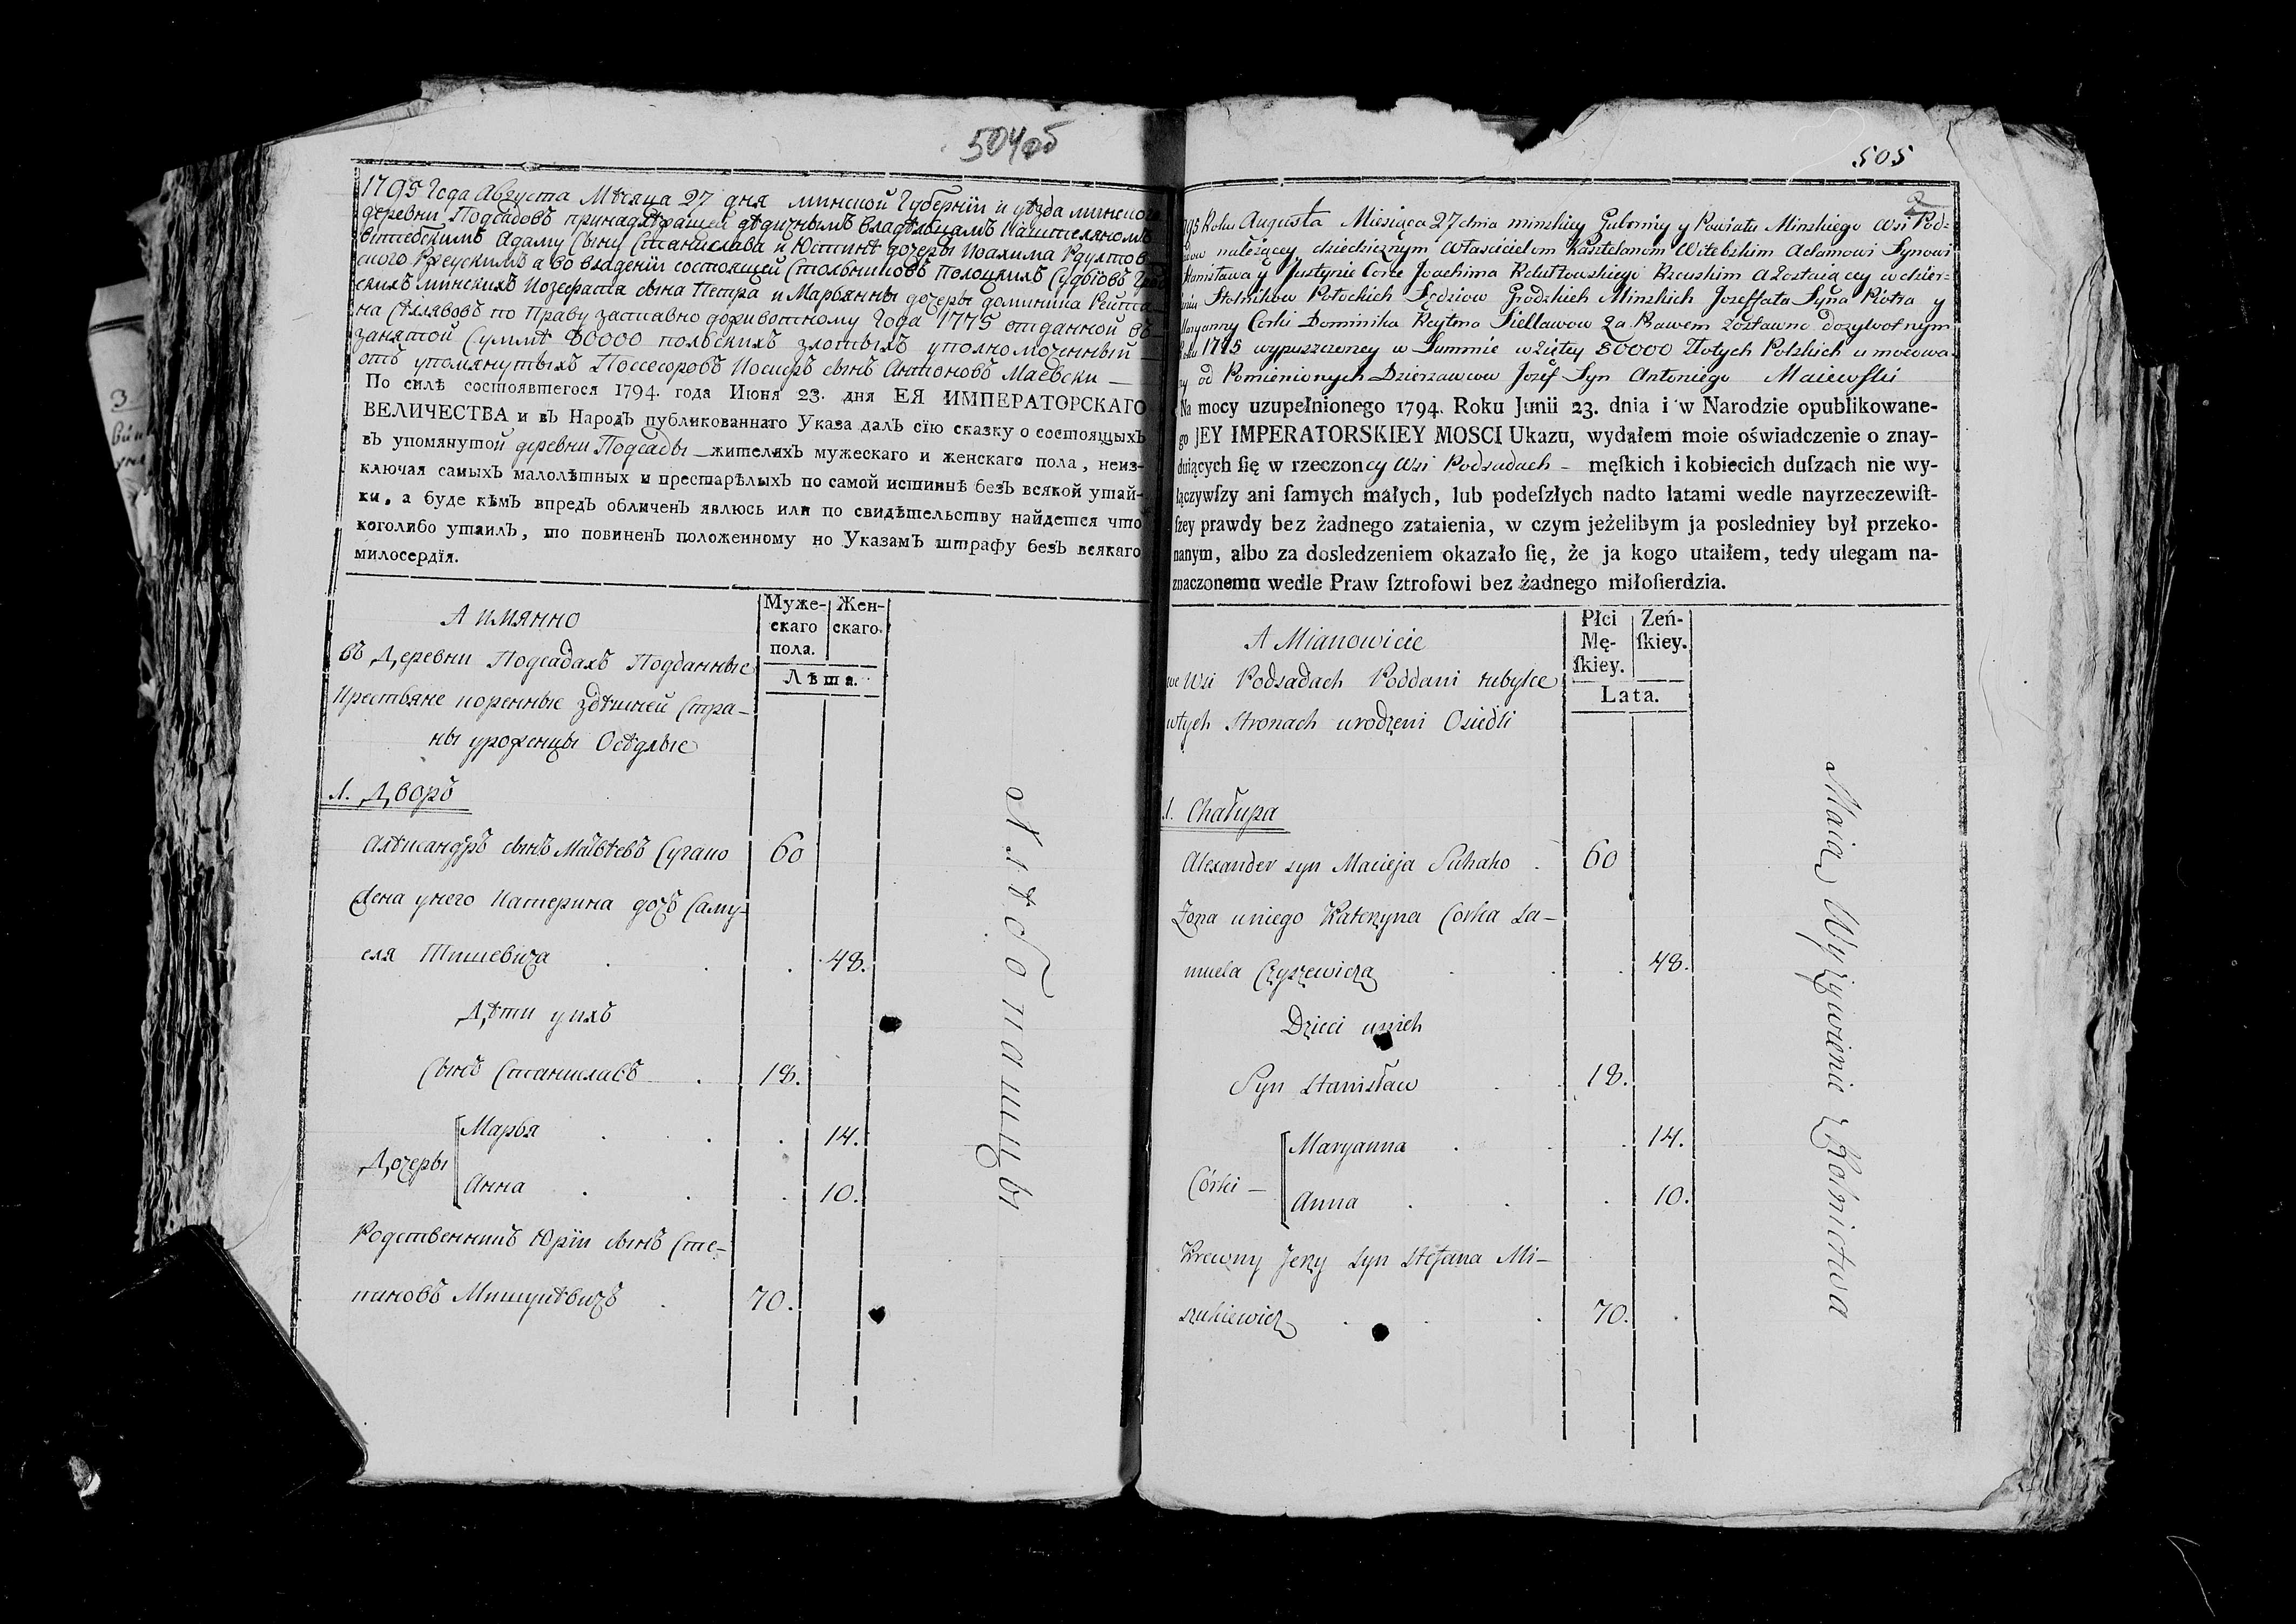 504об
1795 Года Августа Мѣсяца 27 дня минской Губерніи и уѣзда минского
деревни Подсадовъ принадлѣжащей дѣдичнымъ владѣльцамъ Каштеляномъ
витебскимъ Адаму Сыну Станислава и Юстинѣ дочеры Иоахима Рдултов
ского Ржеускимъ а во владеніи состоящей Стольниковъ полоцкихъ Судьіовъ
скихъ минскихъ Иозефата сына Петра и Марьянны дочеры доминика Рейта
на Селявовъ по Праву заставно доживотному Года 1775 отданной въ
занятой Суммѣ 80000 польскихъ злотыхъ уполномоченный
отъ упомянутыхъ Поссесоровъ Иосифъ сынъ Антоновъ Маевски —
По силѣ состоявшегося 1794. года Июня 23. дня ЕЯ ИМПЕРАТОРСКАГО
ВЕЛИЧЕСТВА и въ Народъ публикованнаго Указа далъ сїю сказку о состоящыхъ
въ упомянутой деревни Подсады — жителяхъ мужескаго и женскаго пола, неиз-
ключая самыхъ малолѣтныхъ и престарѣлыхъ по самой истиннѣ безъ всякой утай-
ки, а буде кѣмъ впредъ обличенъ явлюсь или по свидѣтельству найдется что
коголибо утаилъ, то повиненъ положенному по Указамъ штрафу безъ всякаго
милосердїя.
А имянно
Муже-
скаго
пола.
Жен-
скаго.
Лѣта.
въ Деревни Подсадахъ Подданные
Крестьяне коренные здѣшней Стра-
ны уроженцы Осѣдлые
1. Дворъ
Алѣксандръ сынъ Матвѣевъ Сугако 60
Жена унего Катерина дочъ Саму-
еля Тишевича 48.
Дѣти унхъ
Сынъ Станиславъ 18.
Дочеры
Марья 14.
Анна 10.
Родственникъ Юрїи сынъ Сте-
пановъ Мишукѣвичъ 70.
Хлѣбопашцы
505
2
Roku Augusta Miesiąca 27 dnia minskiey Guberniy y Powiatu Minskiego Wsi Pod=
należącey dziedzicznym Własicielom Kasztelanom Witebskim Adamowi Synowi
Stanisława y Justynie Corce Joachima Rdułtowskiego Rzeuskim a zostaiącey w dzier=
Stolnikow Połockich Sędziow Grodzkich Minskich Jozeffata Syna Piotra y
Maryanny Corki Dominika Reytena Siellawow za Prawem zostawno dozywotnym
Roku 1775 wypuszczoney w Summie wziętey 80000 Złotych Polskich umocowa
ny od Pomienionych Dzierzawcow Jozef Syn Antoniego Maiewski
Na mocy uzupełnionego 1794. Roku Junii 23. dnia i w Narodzie opublikowane-
go JEY IMPERATORSKIEY MOSCI Ukazu, wydałem moie oświadczenie o znay-
duiących ſię w rzeczoncy Wsi Podsadach – męſkich i kobiecich duſzach nie wy-
łączywſzy ani ſamych małych, lub podeſzłych nadto latami wedle nayrzeczewiſt-
ſzey prawdy bez żadnego zataienia, w czym jeżelibym ja posledniey był przeko-
nanym, albo za dosledzeniem okazało ſię, że ja kogo utaiłem, tedy ulegam na-
znaczonemu wedle Praw ſztrofowi bez żadnego miłoſierdzia.
A Mianowicie
Płci
Mę-
ſkiey.
Zeń-
ſkiey.
Lata.
we Wsi Podsadach Poddani tubylce
wtych Stronach urodzeni Osiedli
1. Chałupa
Alexander syn Macieja Suhako 60
Zona uniego Katerzyna Corka Sa-
muela Czyszewicza 48.
Dzieci unich
Syn Stanisław 18.
Córki —
Maryanna 14.
Anna 10.
Krewny Jerzy Syn Stefana Mi-
szukiewicz 70.
Maią Wyżywienie z Rolnictwa